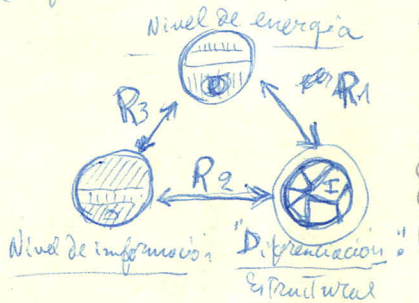 Nivel de energía
R3
R1
R2
I
Nivel de información
"Diferenciación"
Estructural